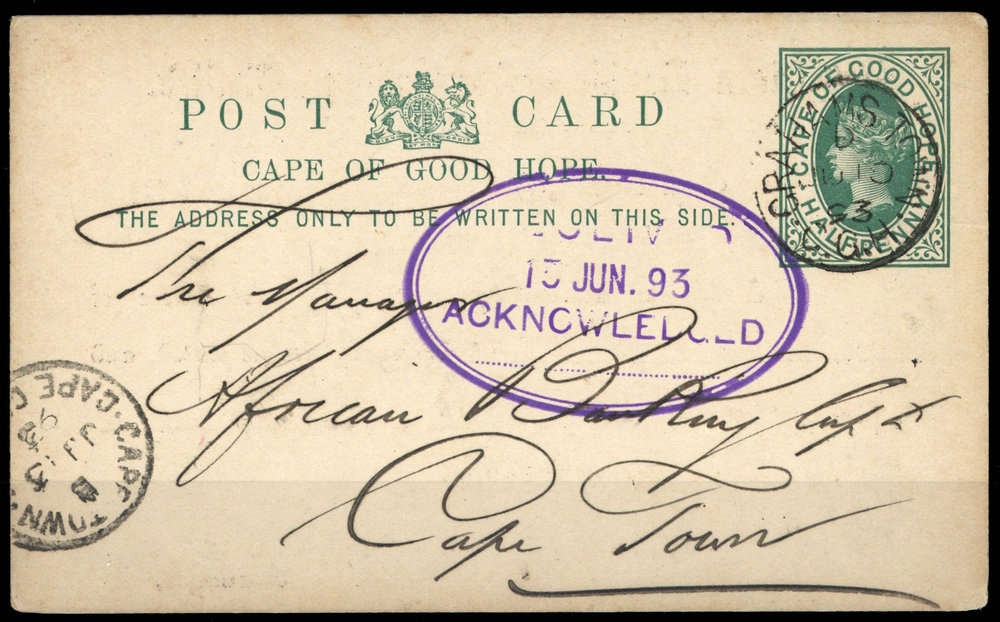 POST CARD
CAPE OF GOOD HOPE.
THE ADDRESS ONLY TO BE WRITTEN ON THIS SIDE.
CAPE OF GOOD HOPE
HALF PENNY
93
15 JUN. 93
ACKNOWLEDGED
The Manager
African Banking Corp
Cape Town
CAPE TOWN. CAPE C